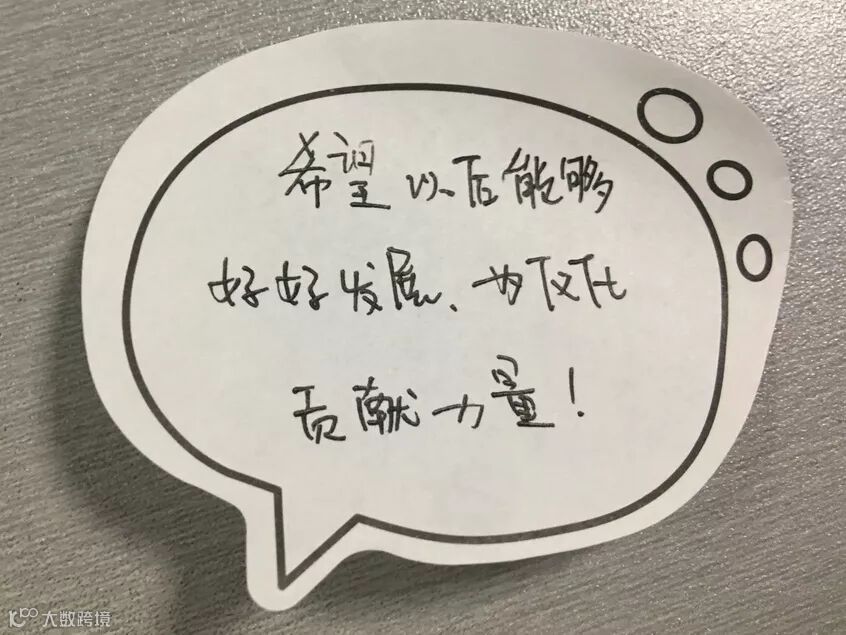 希望以后能够
好好发展、为仄仄
贡献力量!
大数跨境